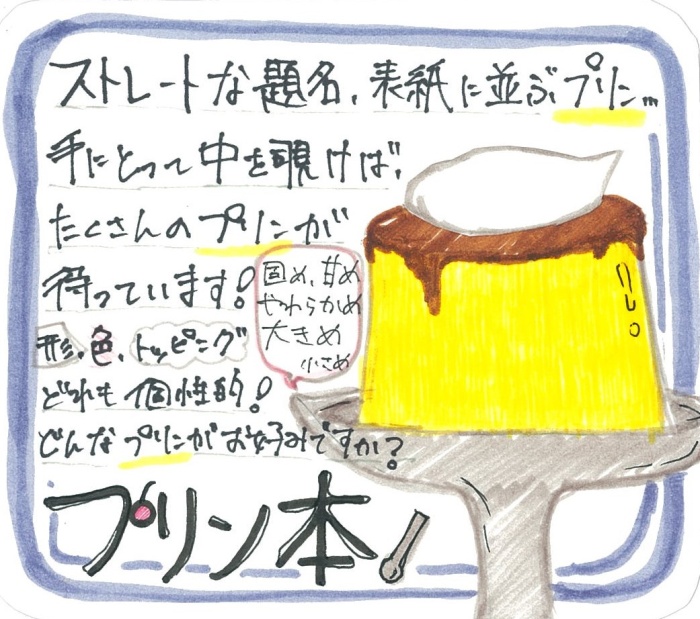 ストレートな題名、表紙に並ぶプリン…
手にとって中を覗けば、
たくさんのプリンが
待っています!
固め、甘め
やわらかめ
大きめ
小さめ
形、色、トッピング
どれも個性的!
どんなプリンがお好みですか?
プリン本!